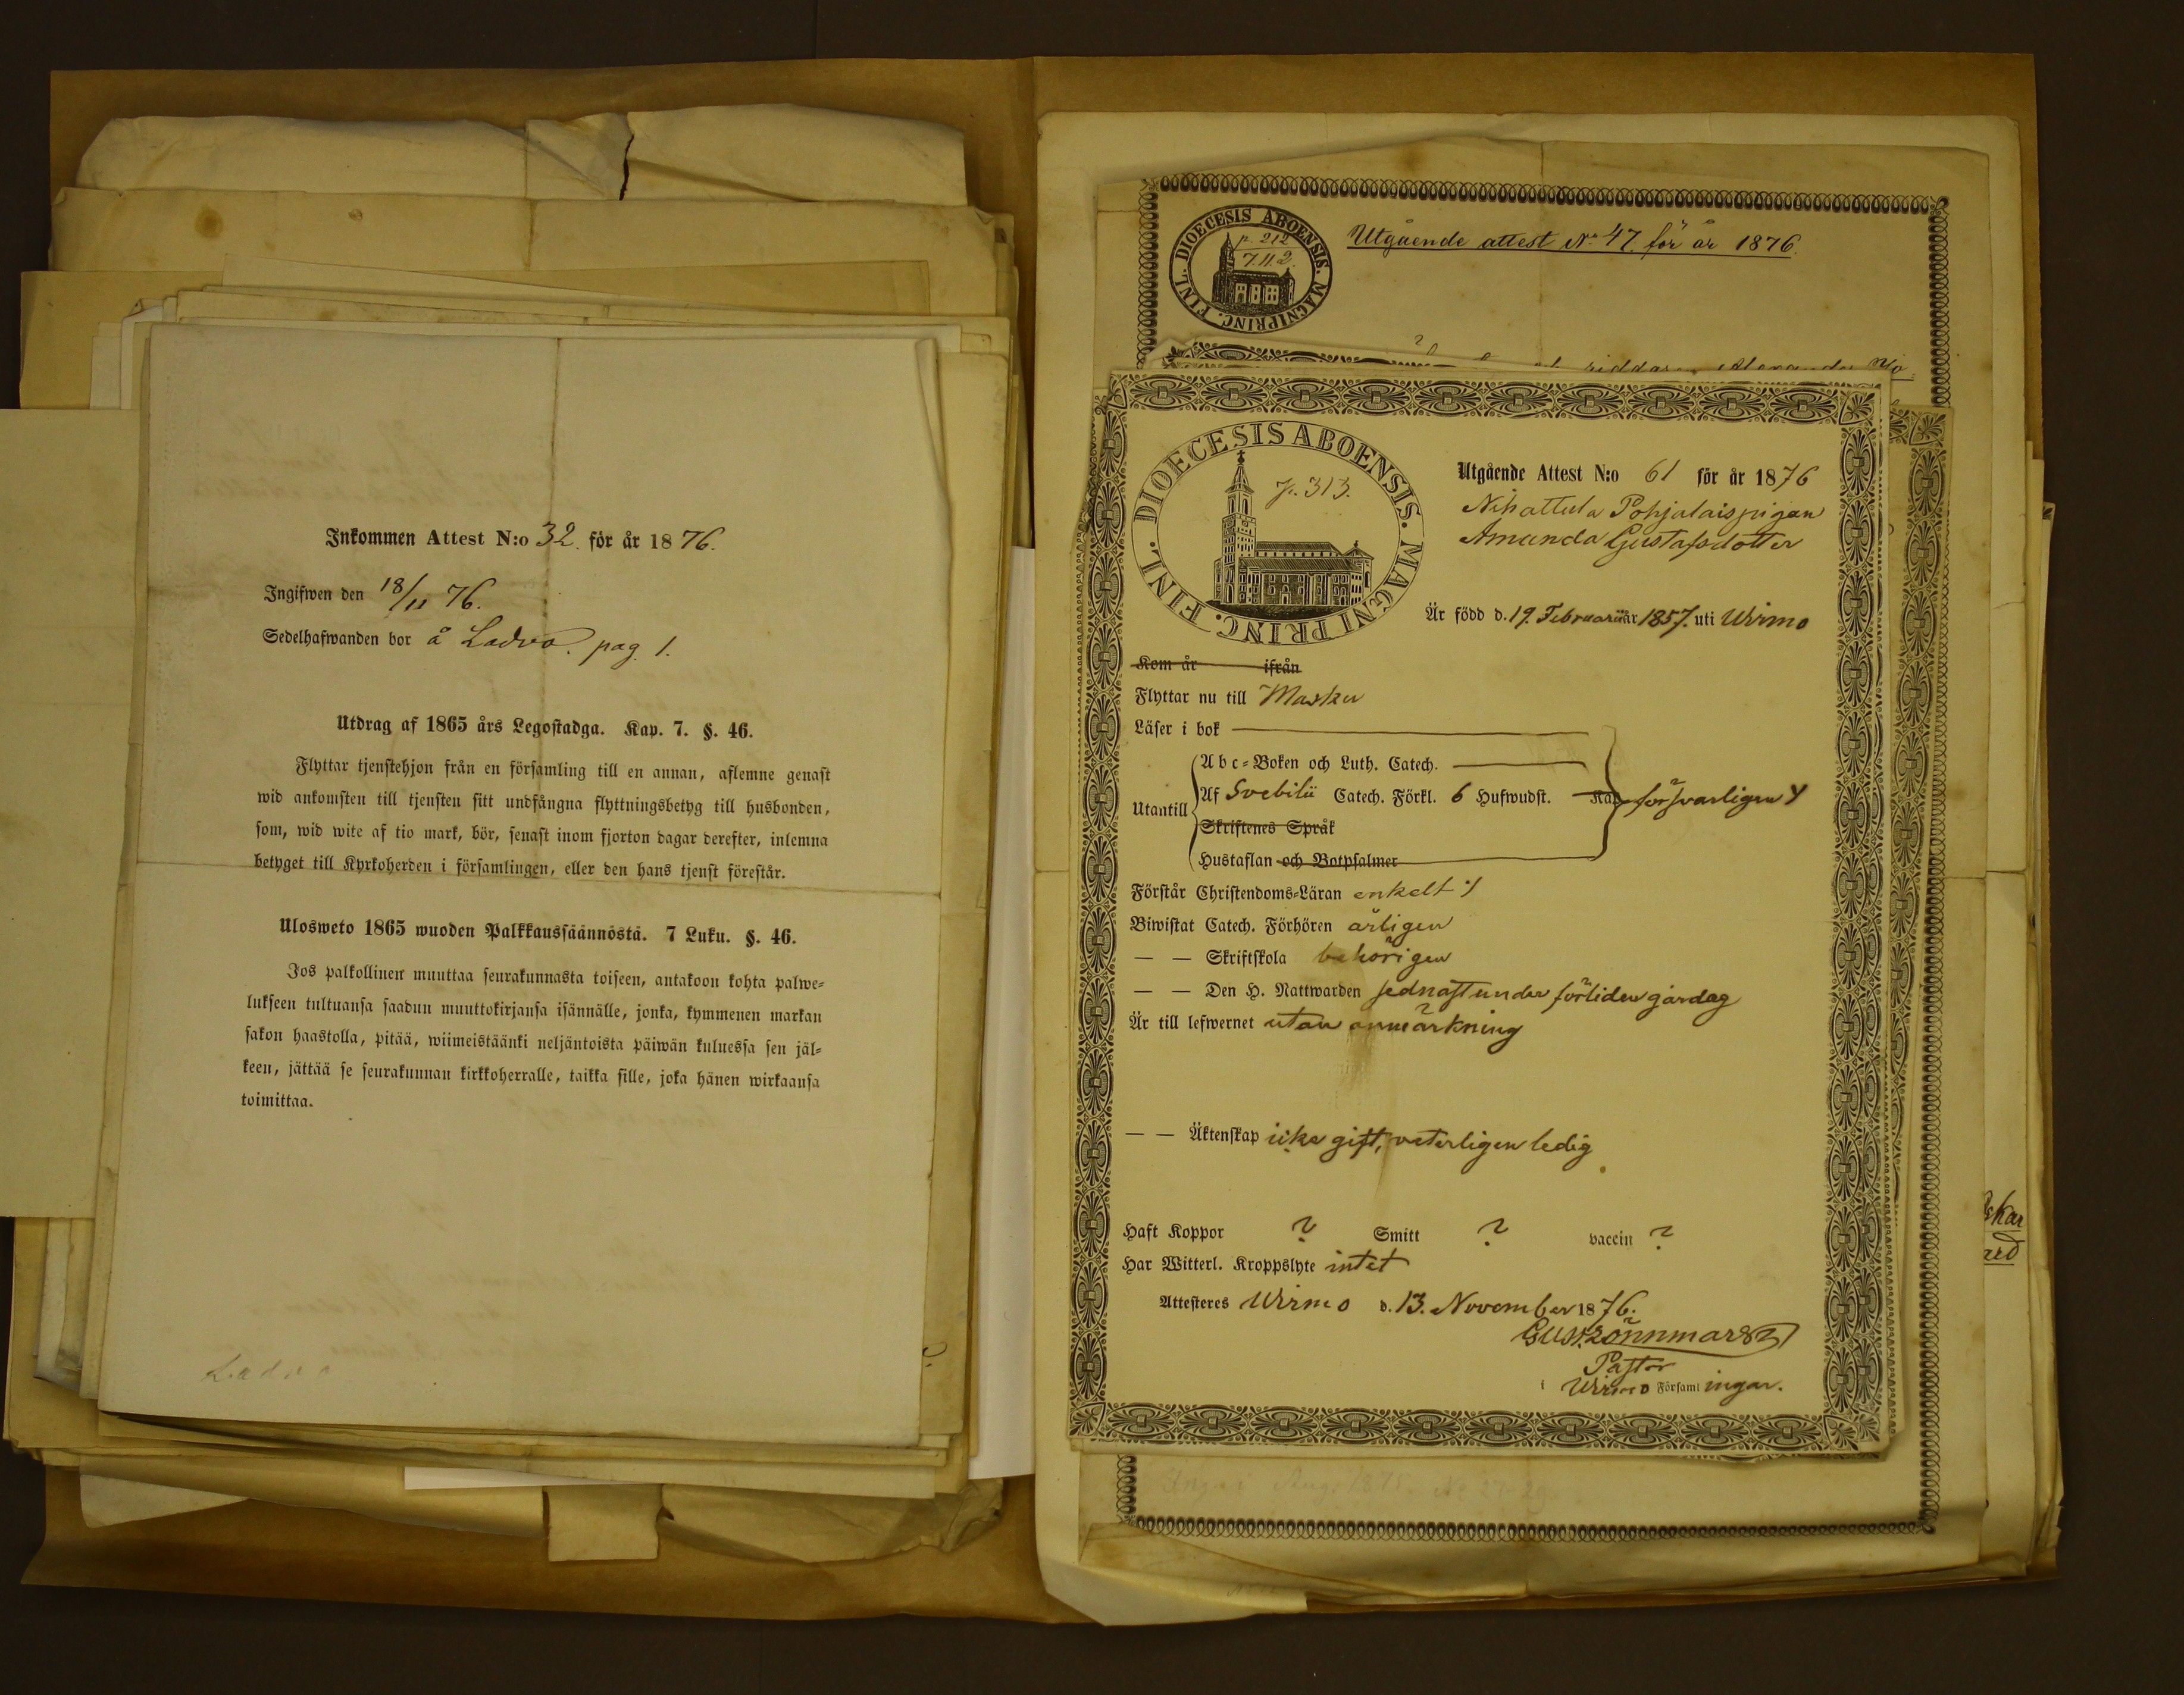 Inkommen Attest N:o 32. för år 1876.
Ingifwen den 18/11 76.
Sedelhafwanden bor å Ladvo. pag. 1.
Utdrag af 1865 års Legostadga. Kap. 7. §. 46.
Flyttar tjenstehjon från en församling till en annan, aflemne genast
wid ankomsten till tjensten sitt undfångna flyttningsbetyg till husbonden,
som, wid wite af tio mark, bör, senast inom fjorton dagar derefter, inlemna
betyget till Kyrkoherden i församlingen, eller den hans tjenst förestår.
Ulosweto 1865 wuoden Palkkaussäännöstä. 7 Luku. §. 46.
Jos palkollinen muuttaa seurakunnasta toiseen, antakoon kohta palwe-
lukseen tultuansa saadun muuttokirjansa isännälle, jonka, kymmenen markan
sakon haastolla, pitää, wiimeistäänki neljäntoista päiwän kuluessa sen jäl-
keen, jättää se seurakunnan kirkkoherralle, taikka sille, joka hänen wirkaansa
toimittaa.
Ladvo
DIOECESIS ABOENSIS. MAGNI PRINC. FINL.
p. 212
7.11.2.
Utgående attest No 47. för år 1876.
DIOECESIS ABOENSIS. MAGNI PRINC. FINL.
p. 313.
Utgående Attest N:o 61 för år 1876
Nihattula Pohjalais pigan
Amanda Gustafsdotter
Är född d. 19. Februarii år 1857. uti Wirmo
Kom år ifrån
Flyttar nu till Masku
Läser i bok
Abc-Boken och Luth. Catech.
Utantill Af Svebilii Catech. Förkl. 6 Hufwudst. Kap. försvarligen
Skriftenes Språk
Hustaflan och Botpsalmer
Förstår Christendoms-Läran enkelt
Biwistat Catech. Förhören årligen
— — Skriftskola behörigen
— — Den H. Nattwarden sednast under förliden gårdag
Är till lefwernet utan anmärkning
— — Äktenskap icke gift, veterligen ledig
Haft Koppor ? Smitt ? vaccin ?
Har Witterl. Kroppslyte intet
Attesteres Wirmo d. 13. November 1876.
Pastor
i Wirmo Församlingar.